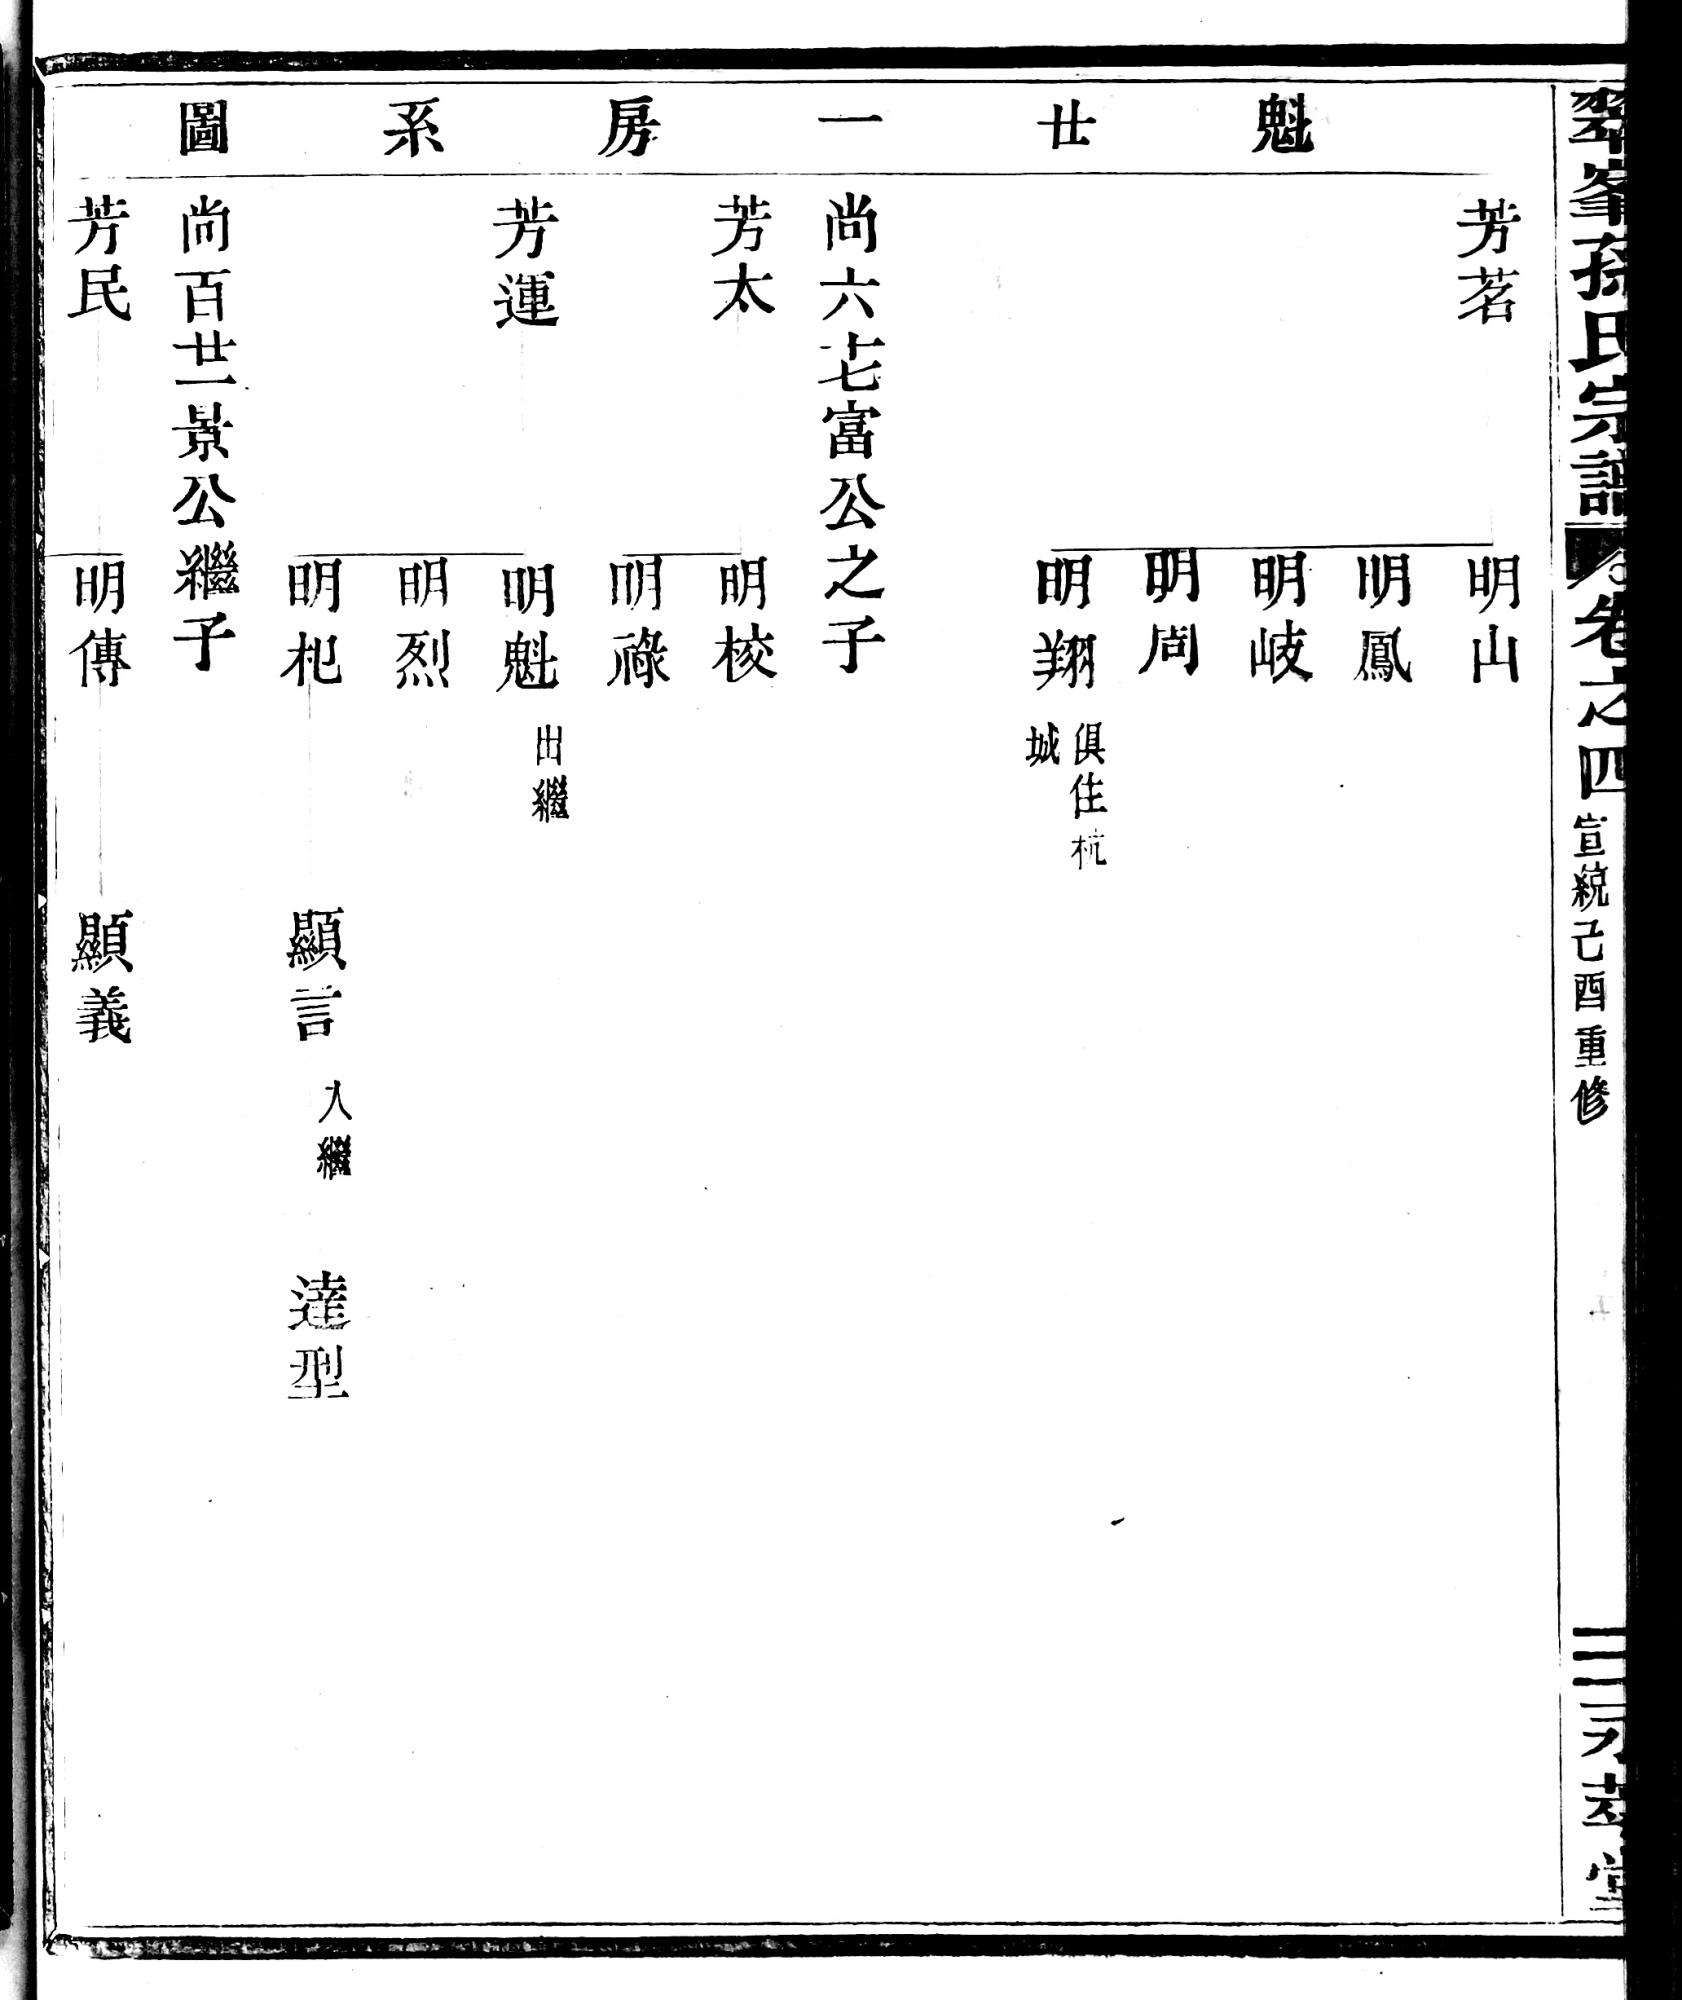 翠峯孫氏宗譜 卷之四 宣統己酉重修 永萃堂
魁廿一房系圖
芳茗 明山
明鳳
明岐
明周
明翔 俱住杭城
尚六七富公之子
芳太 明校
明祿
芳運 明魁 出繼
明烈
明杞 顯言 入繼 達型
尚百廿一景公繼子
芳民 明傳 顯義